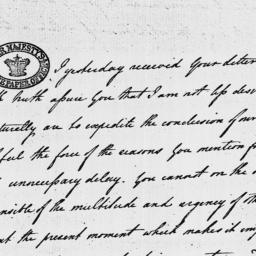 HER MAJESTY'S
STATE PAPER OFFICE
I yesterday received Your Letter
truth assure You that I am not less desi
turally are to expedite the conclusion of our
ful the force of the reasons You mention fo
unnecessary delay. You cannot on the o
nsible of the multitude and urgency of th
t the present moment which makes it imp